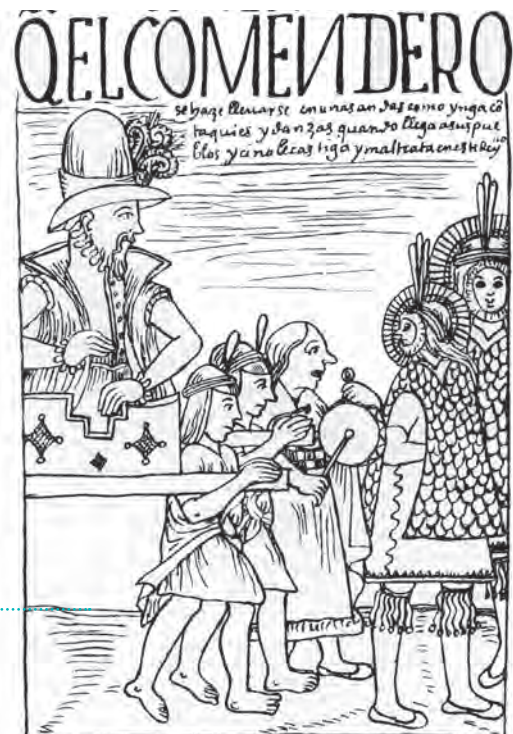 QELCOMENDERO
se haze lleuarse en unas andas como ynga cō
taquies y danzas quando llega a sus pue
blos y cino le castiga y maltrata en este rey^no